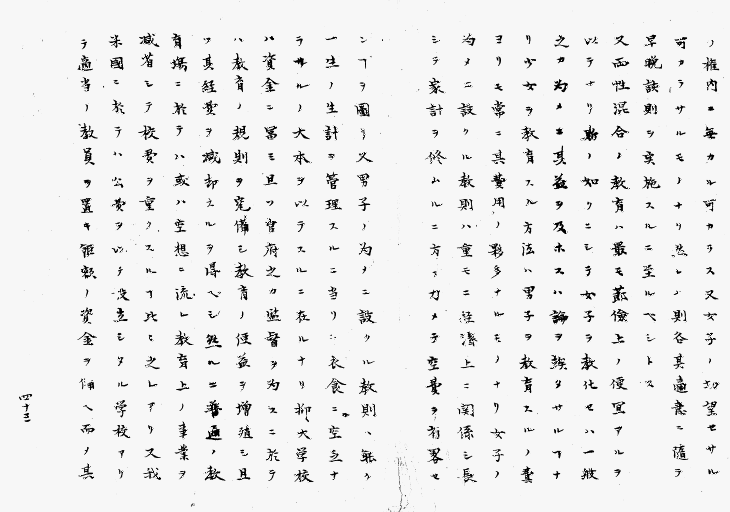 ノ権内ニ毎カル可カラス又女子ノ切望セサル
可カラサルモノナリ然レハ則各其適意ニ随テ
早晩該則ヲ実施スルニ至ルベシトス
又両性混合ノ教育ハ最モ節倹上ノ便宜アルヲ
以テナリ斯ノ如クニシテ女子ヲ教化セハ一般
之カ為メニ其益ヲ及ホスハ論ヲ竢タサルナ
リ少女ヲ教育スル方法ハ男子ヲ教育スルノ費
ヨリモ常ニ其費用ノ夥多ナルモノナリ女子ノ
為メニ設クル教則ハ重モニ経済上ニ関係シ長
シテ家計ヲ修ムルニ方リカメテ空費ヲ省畧セ
ンヿヲ図リ又男子ノ為メニ設クル教則ハ無
一生ノ生計ヲ管理スルニ当リ衣食ニ空乏ナ
ラサルノ大本ヲ以テスルニ在ルナリ抑大学校
ハ資金ニ富ミ且ツ官府之カ監督ヲ為スニ於テ
ハ教育ノ規則ヲ完備シ教育ノ便益ヲ増殖シ且
ツ其経費ヲ減却スルヲ得ベシ然ルニ普通ノ教
育場ニ於テハ或ハ空想ニ流レ教育上ノ事業ヲ
減省シテ校費ヲ重クスルヿ比々之レアリ又我
米國ニ於テハ公費ヲ以テ設立シタル学校アリ
テ適当ノ教員ヲ置キ許多ノ資金ヲ備ヘ而メ其
四十三